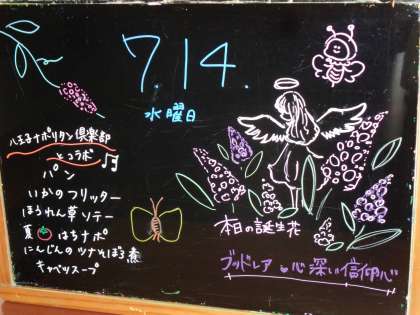 7.14.
水曜日
八王子ナポリタン倶楽部
とコラボ
パン
いかのフリッター
ほうれん草ソテー
夏🍅はちナポ
にんじんのツナそぼろ煮
キャベツスープ
本日の誕生花
ブッドレア 心深い信仰心